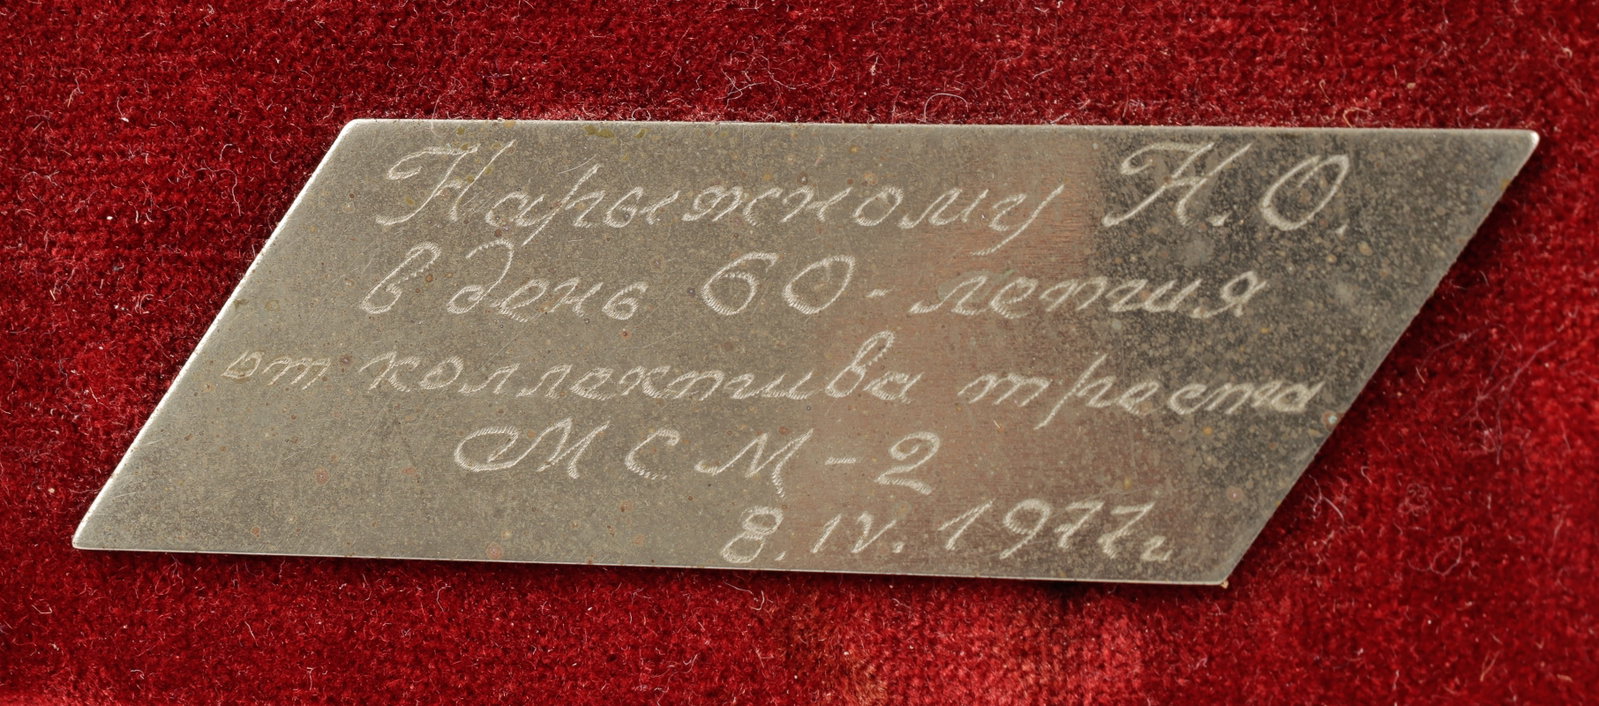 Нарыжному Н.О.
в день 60-летия
от коллектива треста
МСМ-2
8.IV.1977г